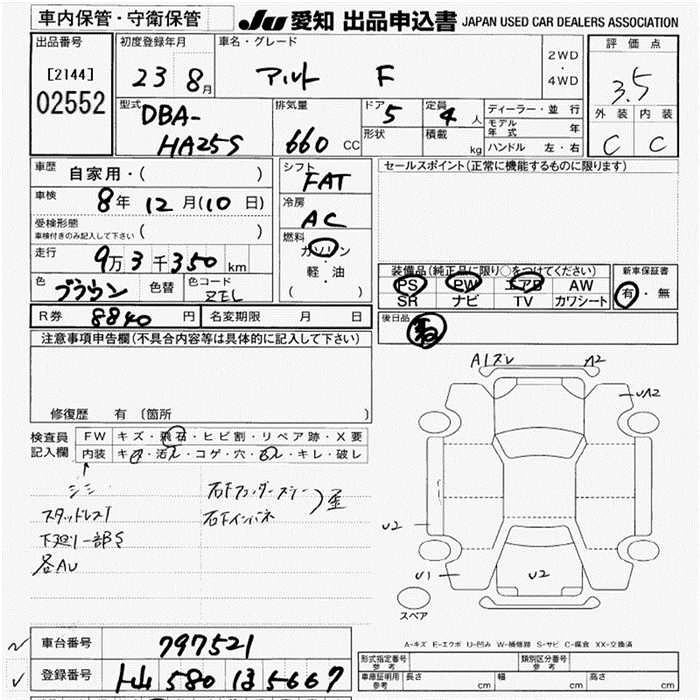 車内保管・守衛保管
JU 愛知 出品申込書 JAPAN USED CAR DEALERS ASSOCIATION
出品番号
[2144]
02552
初度登録年月
23 8月
車名・グレード
アルト F
2WD
・
4WD
評価点
3.5
外装 内装
C C
型式
DBA-
HA25S
排気量
660 cc
ドア 5
形状
定員 4 人
積載 kg
ディーラー・並行
モデル年式 年
ハンドル 左・右
車歴
自家用・( )
車検
8年 12月(10日)
受検形態
車検付きのみ記入して下さい ( )
走行
9万3千350km
色
ブラウン
色替
色コード
ZEL
シフト
FAT
冷房
AC
燃料
ガソリン
軽・油
( )
セールスポイント(正常に機能するものに限ります)
装備品(純正品に限り○をつけてください)
PS PW エアB AW
SR ナビ TV カワシート
新車保証書
有・無
R券 8840 円
名変期限 月 日
後日品
注意事項申告欄(不具合内容等は具体的に記入して下さい)
修復歴 有 [箇所 ]
検査員
記入欄
FW キズ・飛石・ヒビ割・リペア跡・X要
内装 キズ・汚レ・コゲ・穴・スレ・キレ・破レ
シミ
スタッドレス
下廻り一部S
各AU
右Fフェンダーステー
右Fインパネ
歪
A1スレ
A2
UA2
U2
U1
U2
スペア
A-キズ E-エクボ U-凹み W-補修跡 S-サビ C-腐食 XX-交換済
車台番号 797521
登録番号 580 5667
型式指定番号
参考
類別区分番号
参考
車庫証明用
参考
長さ cm
幅 cm
高さ cm